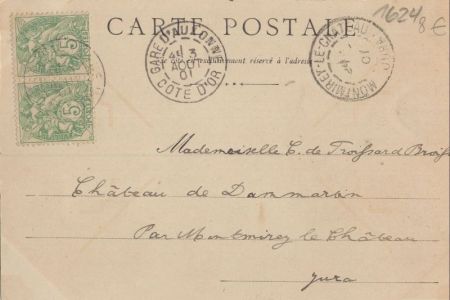 CARTE POSTALE
1624
8 €
Ce côté est exclusivement réservé à l'adresse
5
5
GARE D'AUXONNE
3
AOUT
01
COTE D'OR
MONTMIREY-LE-CHATEAU
JURA
Mademoiselle C. de Troissard Broiss
Château de Dammartin
Par Montmirey le Château
Jura